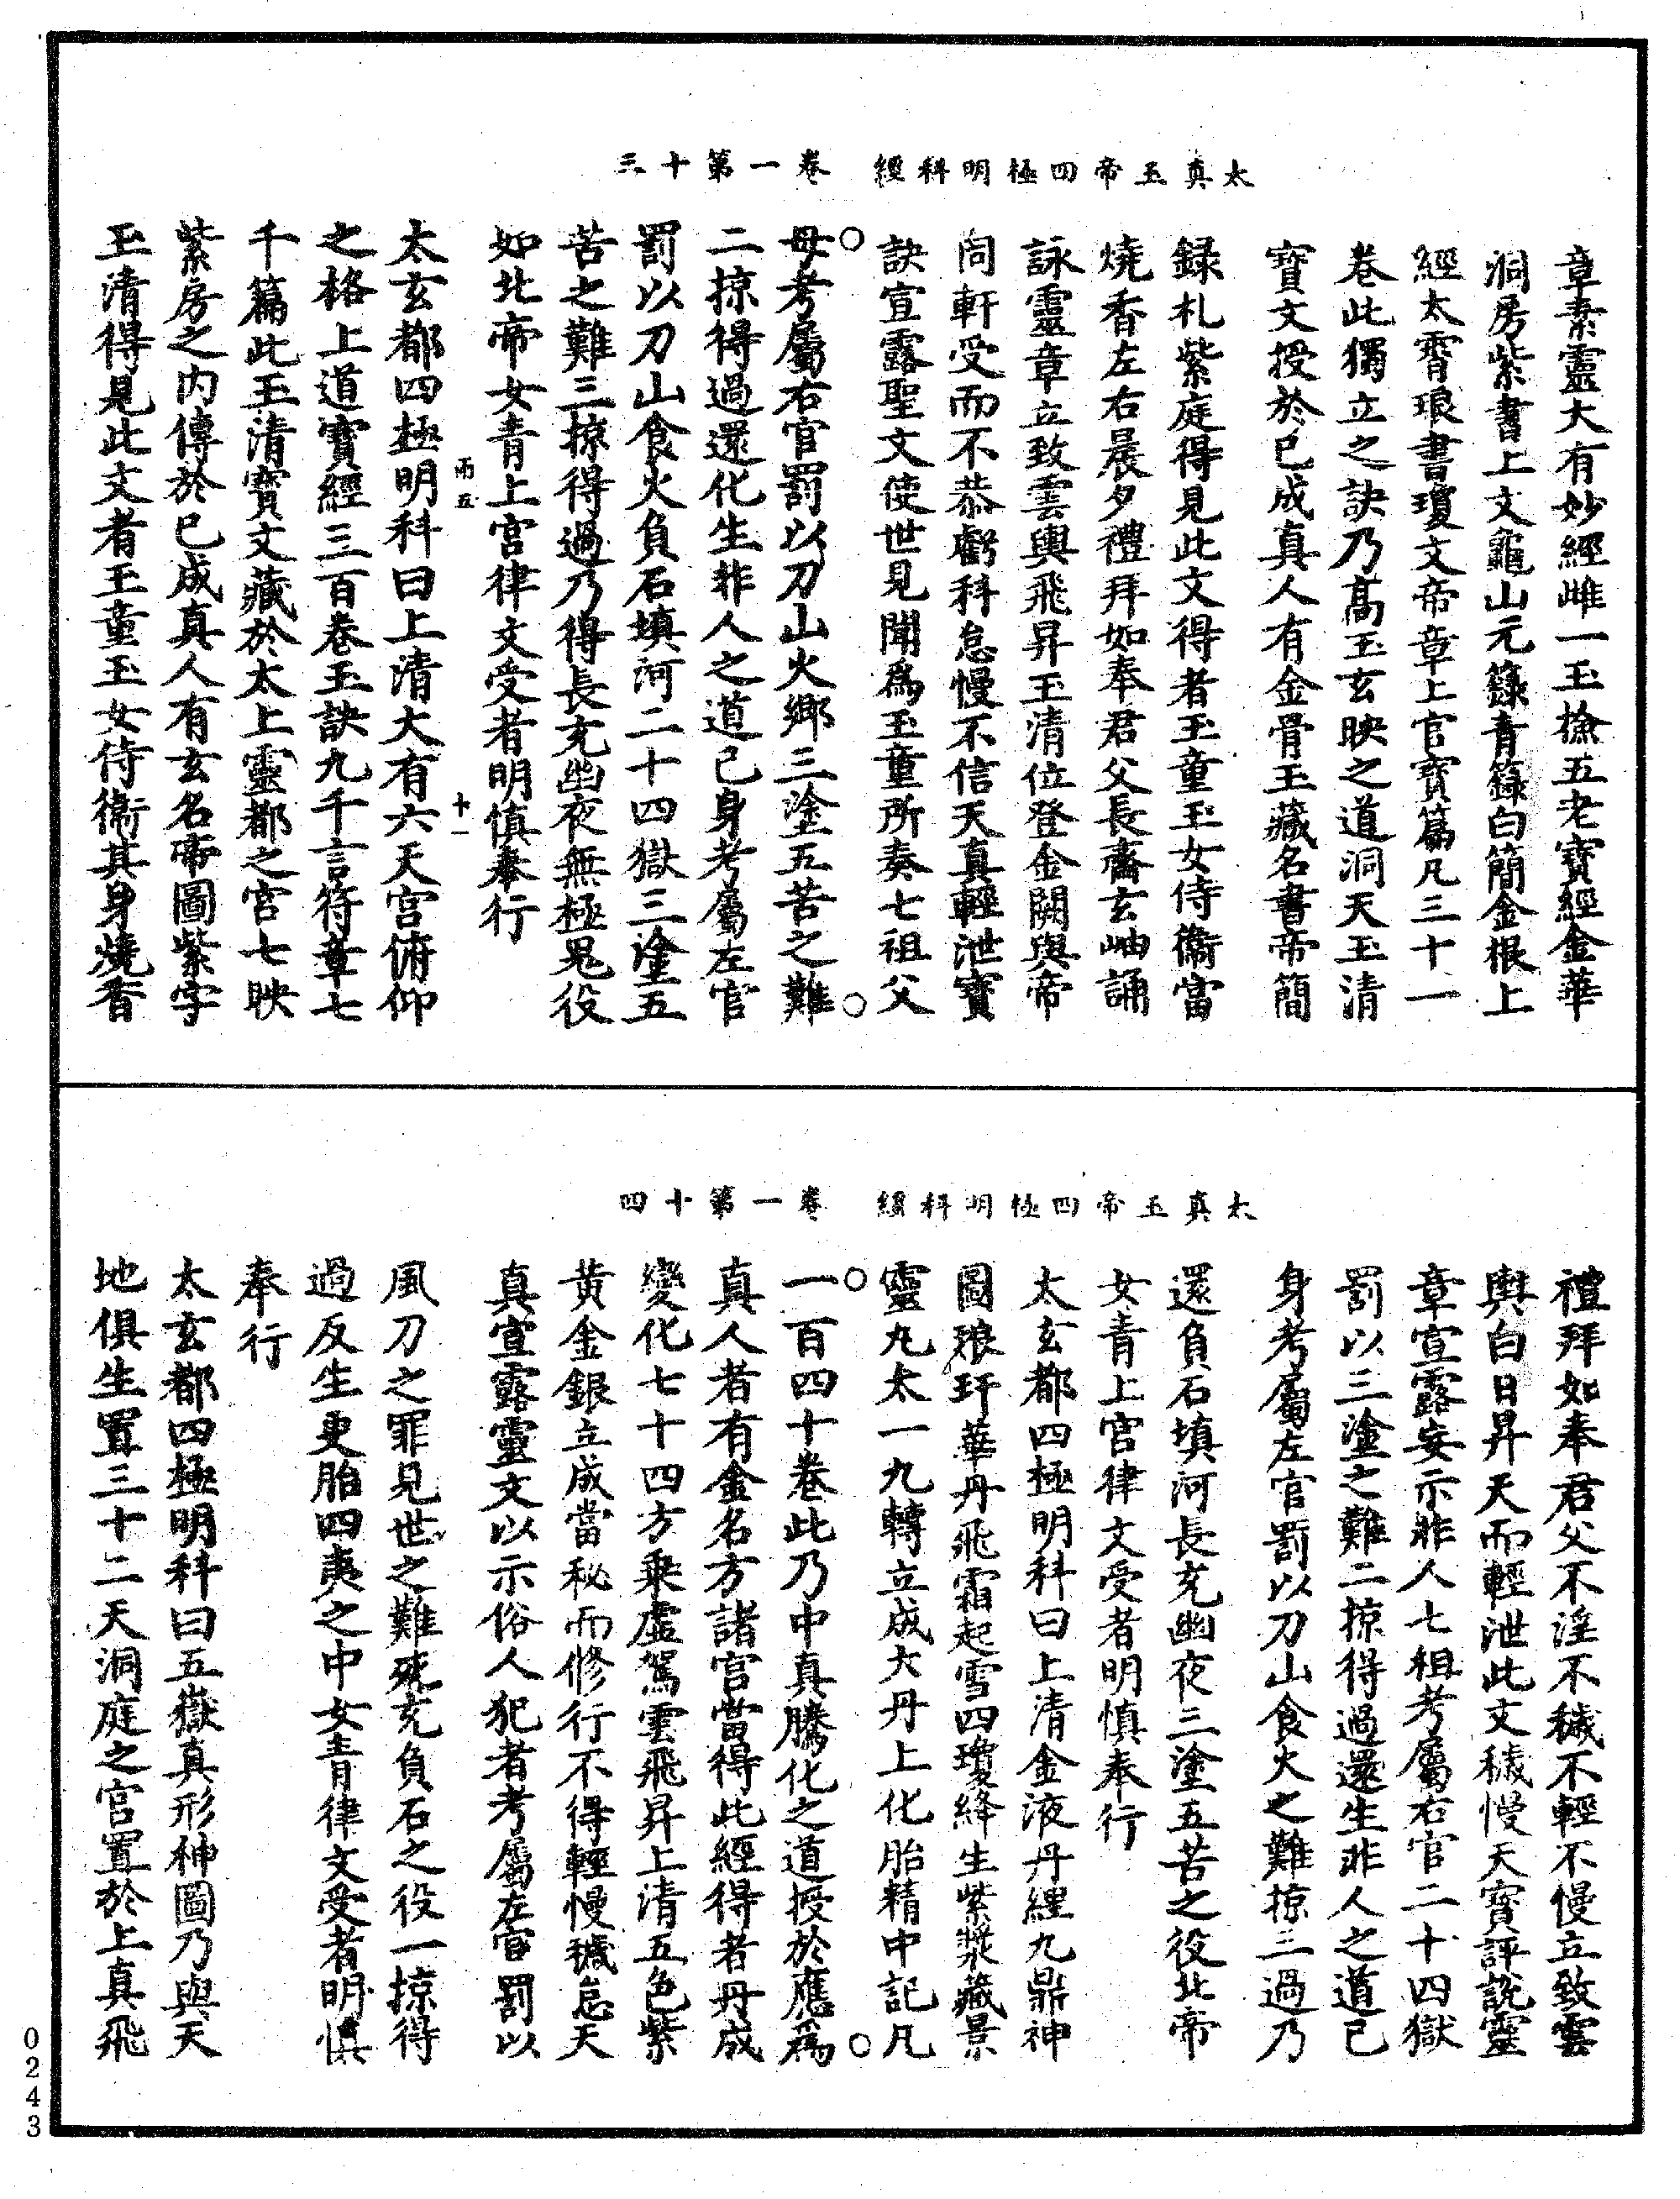 太真玉帝四極明科經　卷一第十三
章素靈大有妙經雌一玉撿五老寶經金華
洞房紫書上文龜山元籙青籙白簡金根上
經太霄琅書瓊文帝章上官寶篇凡三十一
卷此獨立之訣乃高玉玄映之道洞天玉清
寶文授於已成真人有金骨玉藏名書帝簡
録札紫庭得見此文得者玉童玉女侍衛當
燒香左右晨夕禮拜如奉君父長齋玄岫誦
詠靈章立致雲輿飛昇玉清位登金闕與帝
同軒受而不恭虧科怠慢不信天真輕泄寶
訣宣露聖文使世見聞爲玉童所奏七祖父
母考屬右官罰以刀山火鄉三塗五苦之難
二掠得過還化生非人之道己身考屬左官
罰以刀山食火負石填河二十四獄三塗五
苦之難三掠得過乃得長充幽夜無極鬼役
如北帝女青上宫律文受者明慎奉行
太玄都四極明科曰上清大有六天宫俯仰
雨五
十一
之格上道寶經三百卷玉訣九千言符章七
千篇此玉清寶文藏於太上靈都之宫七映
紫房之内傳於已成真人有玄名帝圖紫字
玉清得見此文者玉童玉女侍衛其身燒香
太真玉帝四極明科經　卷一第十四
禮拜如奉君父不淫不穢不輕不慢立致雲
輿白日昇天而輕泄此文穢慢天寶評說靈
章宣露妄示非人七祖考屬右官二十四獄
罰以三塗之難二掠得過還生非人之道己
身考屬左官罰以刀山食火之難掠三過乃
還負石填河長充幽夜三塗五苦之役北帝
女青上官律文受者明慎奉行
太玄都四極明科曰上清金液丹經九鼎神
圖琅玕華丹飛霜起雪四瓊絳生紫漿藏景
靈丸太一九轉立成大丹上化胎精中記凡
一百四十卷此乃中真騰化之道授於應爲
真人者有金名方諸官當得此經得者丹成
變化七十四方乘虛駕雲飛昇上清五色紫
黄金銀立成當秘而修行不得輕慢穢怠天
真宣露靈文以示俗人犯者考屬左官罰以
風刀之罪見世之難死充負石之役一掠得
過反生更胎四夷之中女青律文受者明慎
奉行
太玄都四極明科曰五嶽真形神圖乃與天
地俱生置三十二天洞庭之官置於上真飛
0243